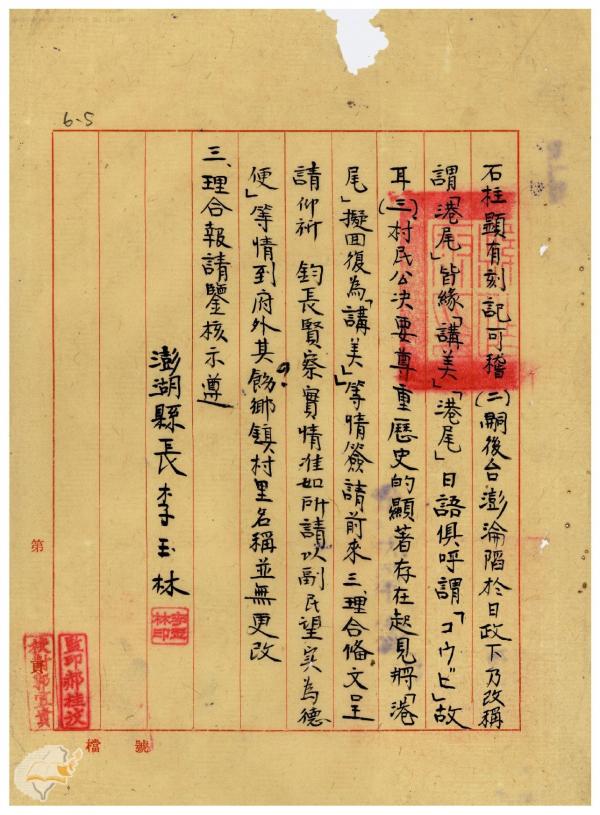 6-5
石柱顯有刻記可稽(二)嗣後台澎淪陷於日政下乃改稱
謂「港尾」皆緣「講美」「港尾」日語俱呼謂「コウビ」故
耳(三)村民公決要尊重歷史的顯著存在起見將「港
尾」擬回復為「講美」」等情簽請前來三、理合備文呈
請仰祈 鈞長賢察實情准如所請以副民望实為德
便」等情到府外其餘鄉鎮村里名稱並無更改
三、理合報請鑒核示遵
澎湖縣長李玉林
李玉林印
監印郝桂
校對
第
檔 號